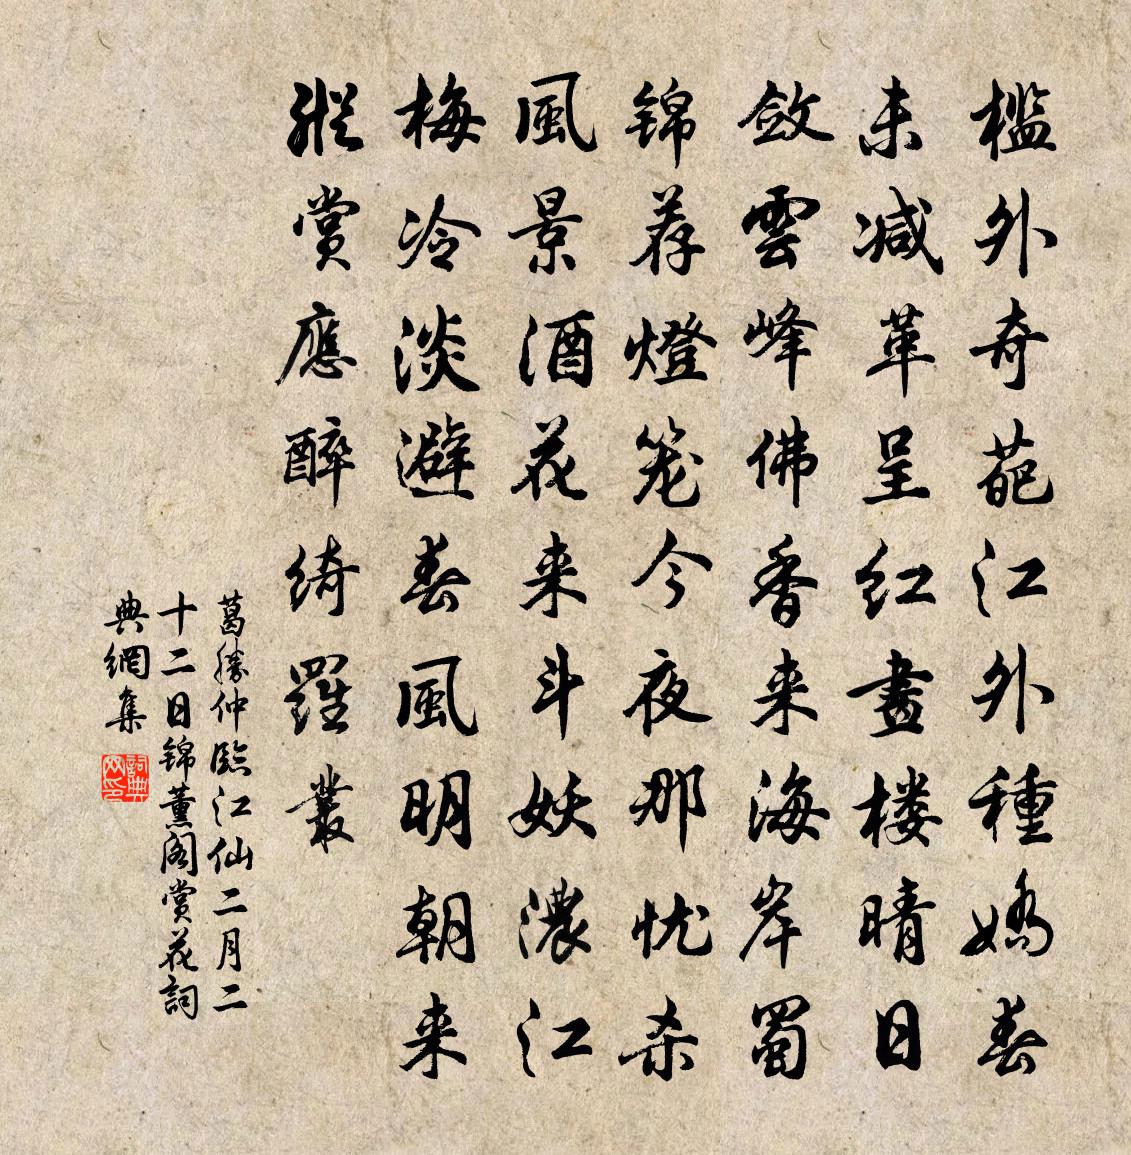 槛外奇葩江外種嬌春
未减革呈红畫楼晴日
敛雲峰佛香来海岸蜀
锦荐燈笼今夜那忧杀
風景酒花来斗妖濃江
梅冷淡避春風明朝来
縱赏應醉绮羅叢
葛勝仲臨江仙二月二
十二日锦薰阁赏花詞
典網集
詞典网印